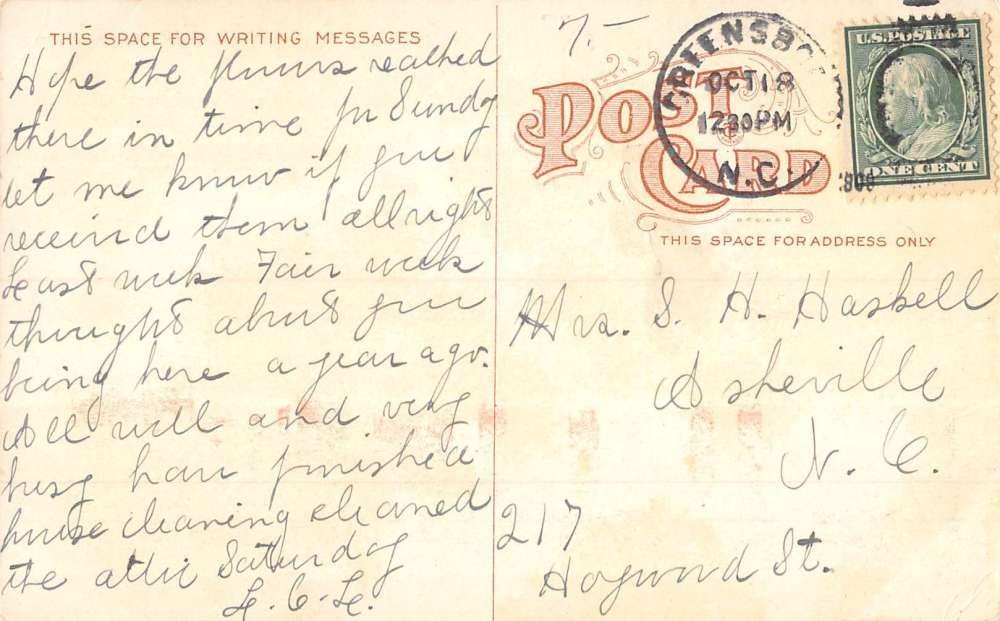 THIS SPACE FOR WRITING MESSAGES
Hope the plums reached
there in time for Sunday
let me know if you
received them allright
Last week Fair week
thought about you
being here a year ago.
All well and very
busy have finished
house cleaning cleaned
the attic Saturday
L. C. L.
7.-
POST CARD
GREENSBO
OCT 18
1230PM
N.C.
U.S. POSTAGE
ONE CENT
THIS SPACE FOR ADDRESS ONLY
Mrs. S. H. Haskell
Asheville
N. C.
217
Haywood St.